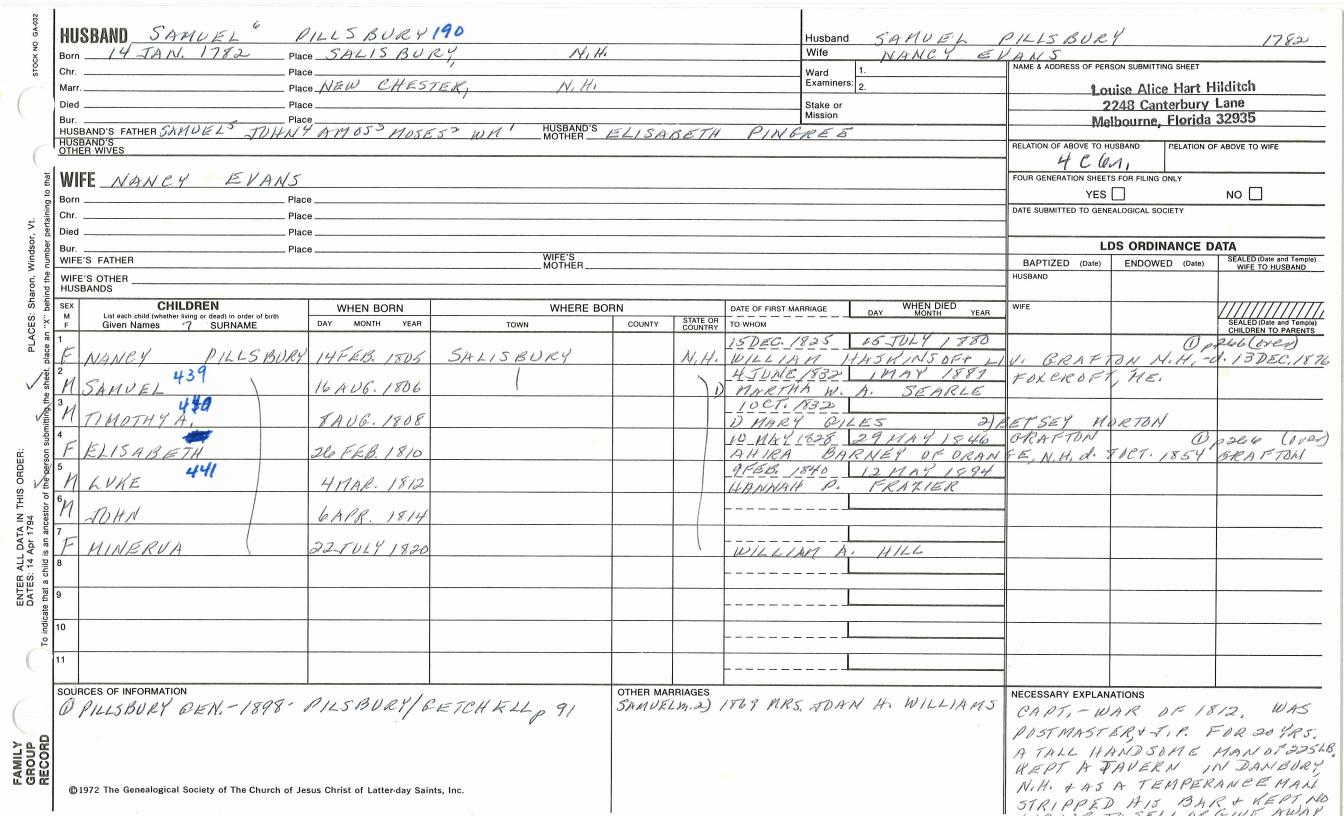 STOCK NO GA-032
HUSBAND SAMUEL 6 PILLSBURY 190
Born 14 JAN. 1782 Place SALISBURY, N.H.
Chr. Place
Marr. Place NEW CHESTER, N.H.
Died Place
Bur. Place
HUSBAND'S FATHER SAMUEL 5 JOHN 4 AMOS 3 MOSES 2 WM 1 HUSBAND'S MOTHER ELISABETH PINGREE
HUSBAND'S OTHER WIVES
Husband SAMUEL PILLSBURY 1782
Wife NANCY EVANS
Ward Examiners: 1. 2.
Stake or Mission
NAME & ADDRESS OF PERSON SUBMITTING SHEET
Louise Alice Hart Hilditch
2248 Canterbury Lane
Melbourne, Florida 32935
RELATION OF ABOVE TO HUSBAND RELATION OF ABOVE TO WIFE
FOUR GENERATION SHEETS FOR FILING ONLY
YES NO
DATE SUBMITTED TO GENEALOGICAL SOCIETY
WIFE NANCY EVANS
Born Place
Chr. Place
Died Place
Bur. Place
WIFE'S FATHER WIFE'S MOTHER
WIFE'S OTHER HUSBANDS
LDS ORDINANCE DATA
BAPTIZED (Date) ENDOWED (Date) SEALED (Date and Temple) WIFE TO HUSBAND
HUSBAND
WIFE
SEALED (Date and Temple) CHILDREN TO PARENTS
SEX M F
CHILDREN
List each child (whether living or dead) in order of birth
Given Names 7 SURNAME
WHEN BORN
DAY MONTH YEAR
WHERE BORN
TOWN COUNTY STATE OR COUNTRY
DATE OF FIRST MARRIAGE
TO WHOM
WHEN DIED
DAY MONTH YEAR
1 15 DEC. 1825 JULY 1880 ① p266 (over)
F NANCY PILLSBURY 14 FEB. 1805 SALISBURY N.H. WILLIAM HASKINS OF & LIV. GRAFTON N.H., -d. 13 DEC. 1876
2 439 4 JUNE/1832 1 MAY 1887 FOXCROFT, ME.
M SAMUEL 16 AUG. 1806 1) MARTHA W. A. SEARLE
3 1 OCT. 1832
M TIMOTHY A. 8 AUG. 1808 1) MARY GILES 2) BETSEY MORTON
4 10 MAY 1828 29 MAY 1846 GRAFTON ① p266 (over)
F ELISABETH 26 FEB. 1810 AHIRA BARNEY OF ORANGE, N.H. d. 7 OCT. 1854 GRAFTON
5 441 9 FEB. 1840 12 MAY 1894
M LUKE 4 MAR. 1812 HANNAH P. FRAZIER
6
M JOHN 6 APR. 1814
7
F MINERVA 22 JULY 1820 WILLIAM A. HILL
8
9
10
11
PLACES: Sharon, Windsor, Vt.
ENTER ALL DATA IN THIS ORDER:
DATES: 14 Apr 1794
To indicate that a child is an ancestor of the person submitting the sheet, place an "X" behind the number pertaining to that
SOURCES OF INFORMATION
① PILLSBURY GEN. - 1898 - PILSBURY/GETCHELL p 91
OTHER MARRIAGES
SAMUEL m. 2) 1869 MRS. JOAN H. WILLIAMS
NECESSARY EXPLANATIONS
CAPT. - WAR OF 1812. WAS
POSTMASTER, & J.P. FOR 20 YRS.
A TALL HANDSOME MAN OF 225 LB.
KEPT A TAVERN IN DANBURY,
N.H. & AS A TEMPERANCE MAN
STRIPPED HIS BAR & KEPT NO
FAMILY GROUP RECORD
©1972 The Genealogical Society of The Church of Jesus Christ of Latter-day Saints, Inc.